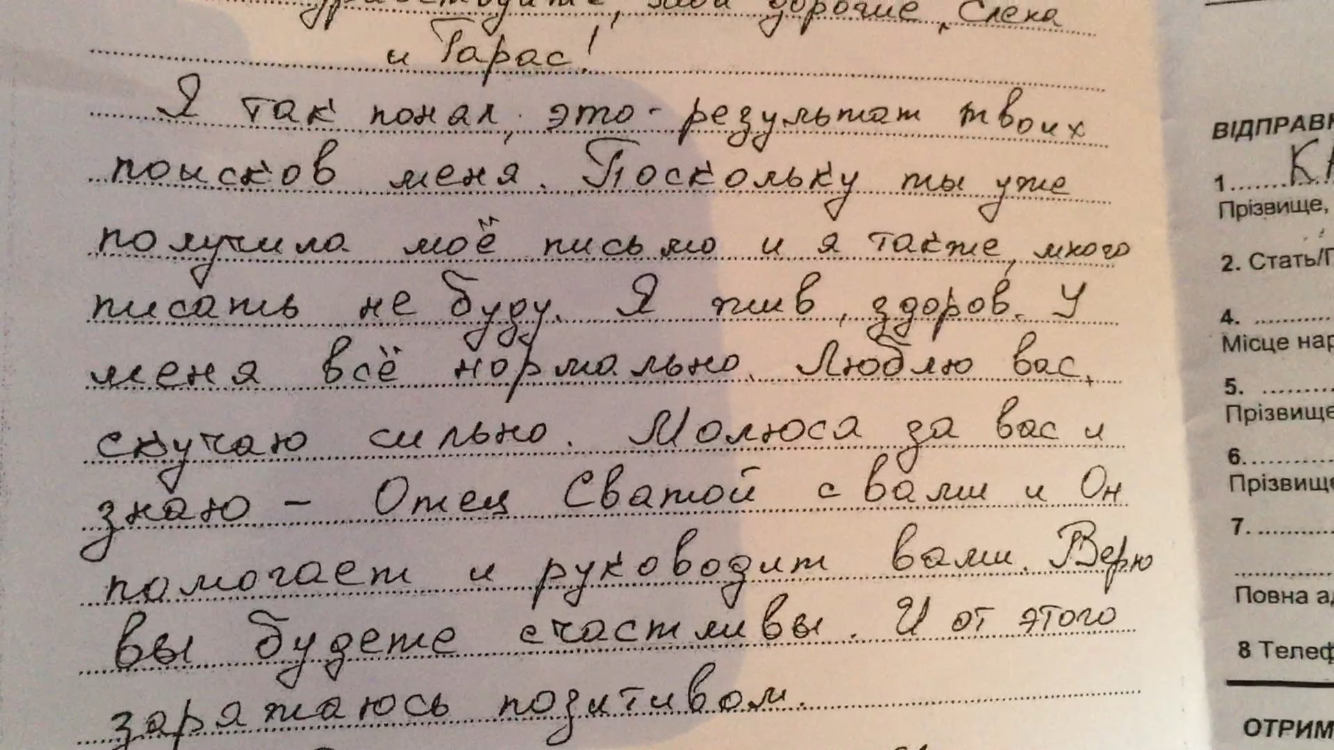 дорогие, Елена
и Тарас!
Я так понял, это - результат твоих
поисков меня. Поскольку ты уже
получила моё письмо и я также, много
писать не буду. Я жив, здоров. У
меня всё нормально. Люблю вас,
скучаю сильно. Молюса за вас и
знаю - Отец Сватой с вами и Он
помогает и руководит вами. Верю
вы будете счастливы. И от этого
заряжаюсь позитивом.
ВІДПРАВН
1. КА
Прізвище,
2. Стать/Г
4.
Місце нар
5.
Прізвище
6.
Прізвище
7.
Повна ад
8 Телеф
ОТРИМ